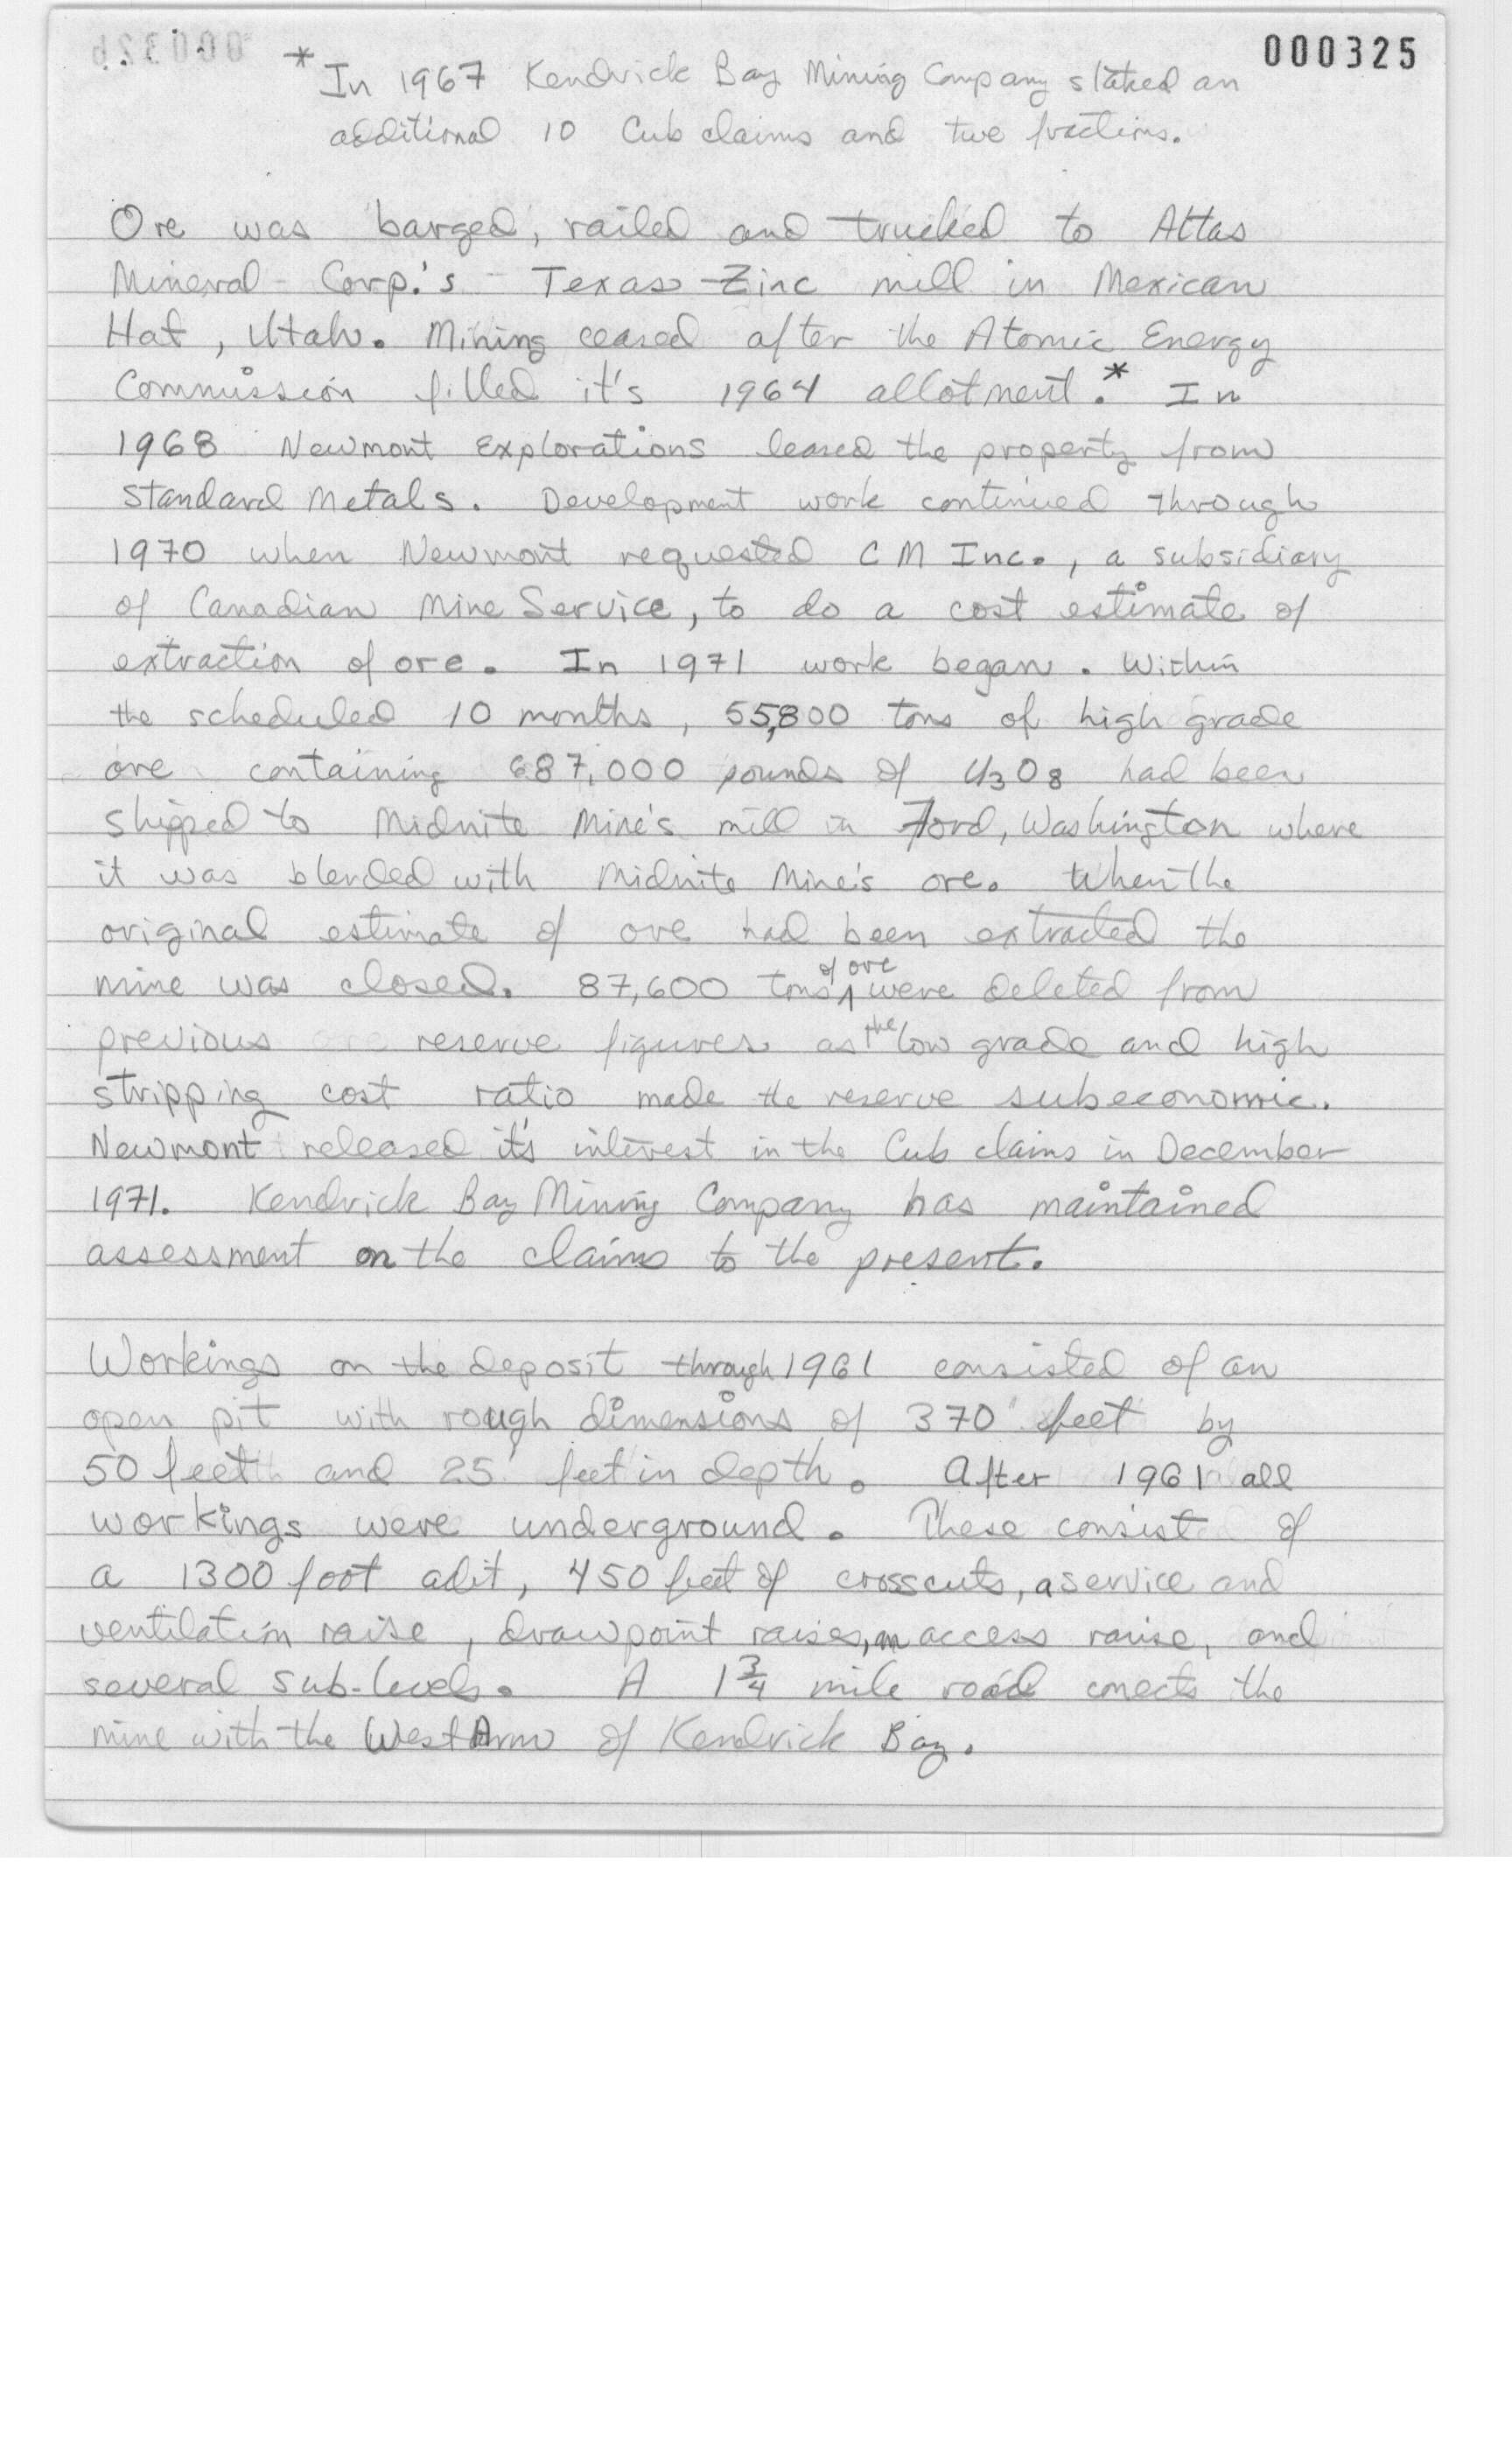 000325
* In 1967 Kendrick Bay Mining Company staked an
additional 10 Cub claims and two fractions.
Ore was barged, railed and trucked to Attas
Mineral Corp.'s Texas Zinc mill in Mexican
Hat, Utah. Mining ceased after the Atomic Energy
Commission filled it's 1964 allotment.* In
1968 Newmont Explorations leased the property from
Standard Metals. Development work continued through
1970 when Newmont requested CM Inc., a subsidiary
of Canadian Mine Service, to do a cost estimate of
extraction of ore. In 1971 work began. Within
the scheduled 10 months, 55,800 tons of high grade
ore containing 687,000 pounds of U3O8 had been
shipped to Midnite Mine's mill in Ford, Washington where
it was blended with Midnite Mine's ore. When the
original estimate of ore had been extracted the
mine was closed. 87,600 tons of ore were deleted from
previous reserve figures as the low grade and high
stripping cost ratio made the reserve subeconomic.
Newmont released it's interest in the Cub claims in December
1971. Kendrick Bay Mining Company has maintained
assessment on the claims to the present.
Workings on the deposit through 1961 consisted of an
open pit with rough dimensions of 370 feet by
50 feet and 25 feet in depth. After 1961 all
workings were underground. These consist of
a 1300 foot adit, 450 feet of crosscuts, a service and
ventilation raise, drawpoint raises, an access raise, and
several sub-levels. A 1 3/4 mile road conects the
mine with the West Arm of Kendrick Bay.